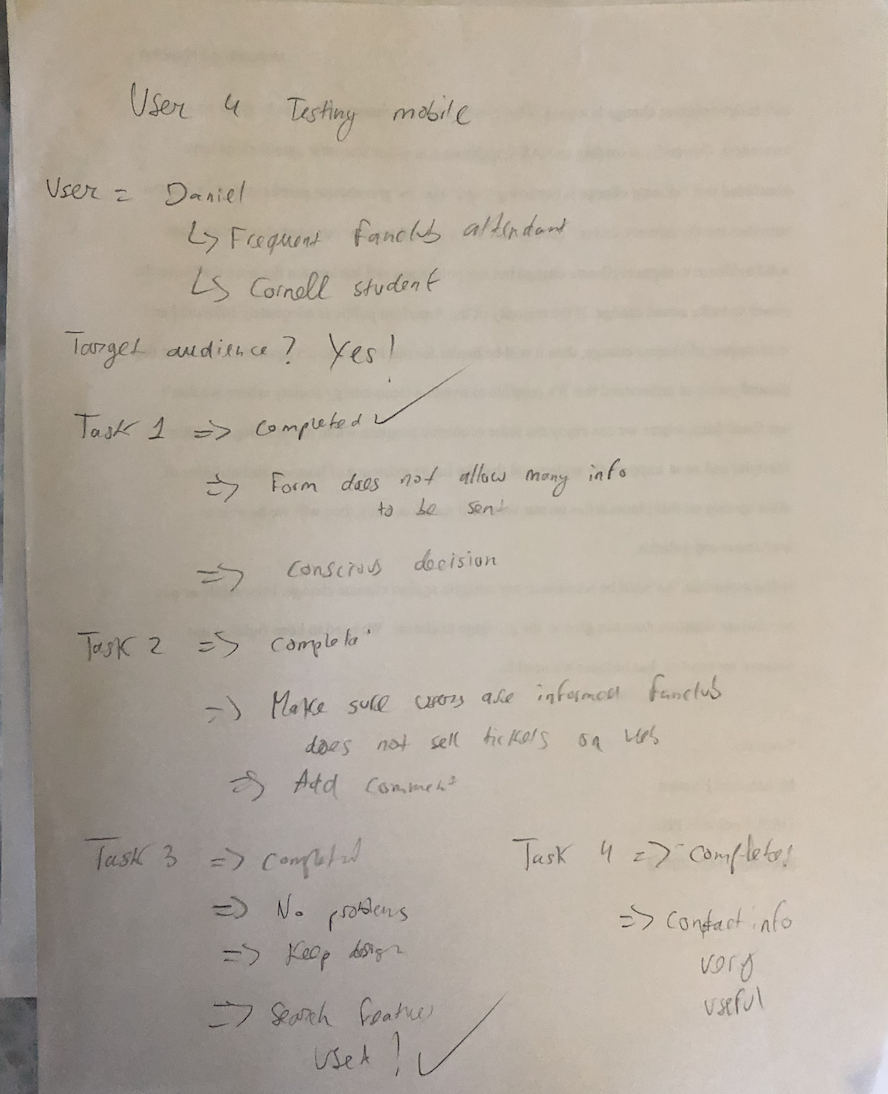 User 4 Testing mobile
User = Daniel
↳ Frequent fanclub attendant
↳ Cornell student
Target audience? Yes!
Task 1 => completed ✓
=> Form does not allow many info
to be sent
=> Conscious decision
Task 2 => Complete
=> Make sure users are informed fanclub
does not sell tickets on web
=> Add comment
Task 3 => Completed
=> No problems
=> Keep design
=> Search feature
used! ✓
Task 4 => completed
=> Contact info
very
useful